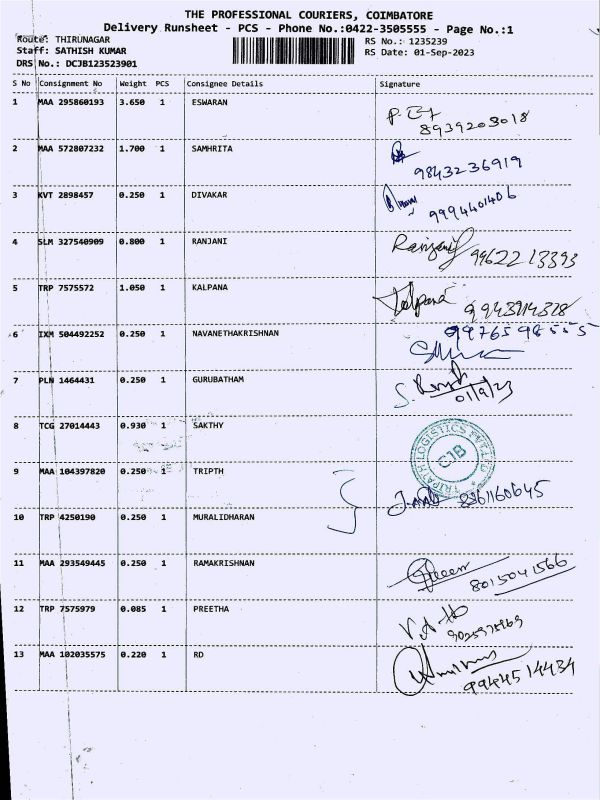 THE PROFESSIONAL COURIERS, COIMBATORE
Delivery Runsheet - PCS - Phone No.:0422-3505555 - Page No.:1
Route: THIRUNAGAR
RS No.: 1235239
Staff: SATHISH KUMAR
RS Date: 01-Sep-2023
DRS No.: DCJB123523901
S No Consignment No Weight PCS Consignee Details Signature
1 MAA 295860193 3.650 1 ESWARAN
8939203018
2 MAA 572807232 1.700 1 SAMHRITA
9843236919
3 KVT 2898457 0.250 1 DIVAKAR
9994401406
4 SLM 327540909 0.800 1 RANJANI Ranjani
9962213393
5 TRP 7575572 1.050 1 KALPANA Kalpana
6 IXM 504492252 0.250 1 NAVANETHAKRISHNAN 9976598555
7 PLN 1464431 0.250 1 GURUBATHAM
01/9/23
8 TCG 27014443 0.930 1 SAKTHY
TRIPATH LOGISTICS PVT LTD
CJB
9 MAA 104397820 0.250 1 TRIPTH
8861160645
10 TRP 4250190 0.250 1 MURALIDHARAN
11 MAA 293549445 0.250 1 RAMAKRISHNAN
8015041566
12 TRP 7575979 0.085 1 PREETHA
13 MAA 102035575 0.220 1 RD
9944514434